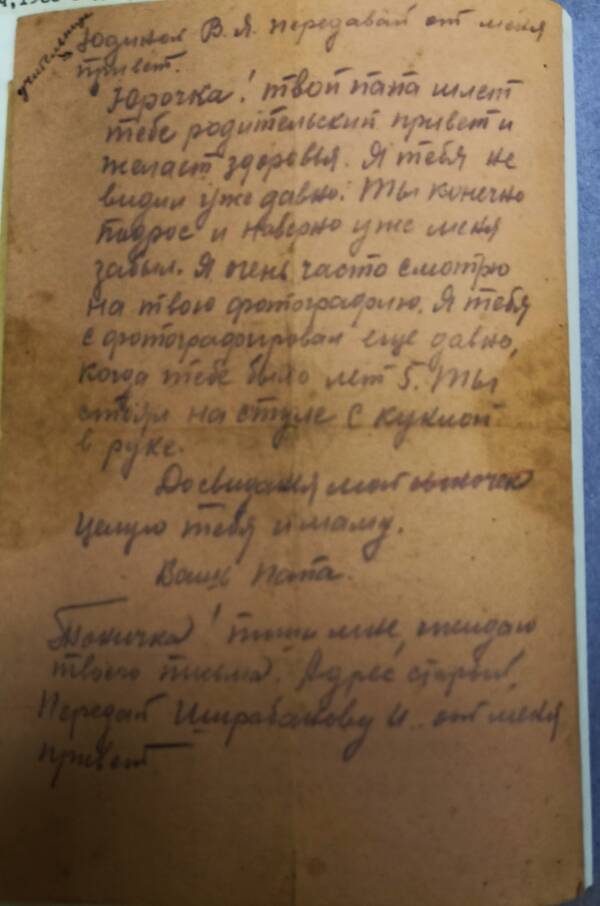 учительнице
Юдиной В.Я. передавай от меня
привет.
Юрочка! твой папа шлет
тебе родительский привет и
желает здоровья. Я тебя не
видил уже давно. Ты конечно
подрос и наверно уже меня
забыл. Я очень часто смотрю
на твою фотографию. Я тебя
сфотографировал еще давно,
когда тебе было лет 5. Ты
стоял на стуле с куклой
в руке.
Досвиданя мой сыночек
целую тебя и маму.
Ваш Папа.
Тоничка! пиши мне, ожидаю
твоего письма. Адрес старый.
Передай И. от меня
привет